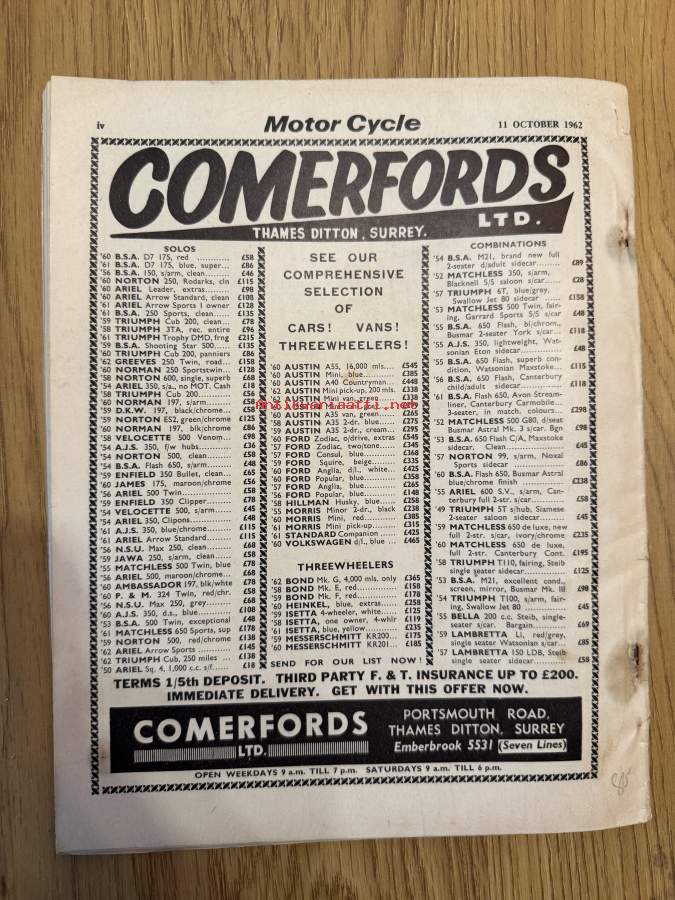 iv
Motor Cycle
11 OCTOBER 1962
COMERFORDS
LTD.
THAMES DITTON, SURREY.
SOLOS
'60 B.S.A. D7 175, red ............ £58
'61 B.S.A. D7 175, blue, super... £86
'56 B.S.A. 150, s/arm, clean...... £46
'60 NORTON 250, Rodarks, cln £115
'60 ARIEL Leader, extras......... £98
'60 ARIEL Arrow Standard, clean £108
'61 ARIEL Arrow Sports 1 owner £128
'61 B.S.A. 250 Sports, clean...... £135
'59 TRIUMPH Cub 200, clean... £78
'58 TRIUMPH 3TA, rec. entire £96
'61 TRIUMPH Trophy DMD, frng £215
'59 B.S.A. Shooting Star 500...... £135
'60 TRIUMPH Cub 200, panniers £86
'62 GREEVES 250 Twin, road... £158
'60 NORMAN 250 Sportstwin... £128
'58 NORTON 600, single, superb £68
'54 ARIEL 350, s/a., no MOT. Cash £18
'58 TRIUMPH Cub 200............ £56
'60 NORMAN 197, s/arm.........
'59 D.K.W. 197, black/chrome... £58
'59 NORTON ES2, green/chrome £125
'60 NORMAN 197, blk/chrome £86
'58 VELOCETTE 500 Venom... £98
'54 A.J.S. 350, f/w hubs......... £36
'54 NORTON 500, clean......... £58
'54 B.S.A. Flash 650, s/arm...... £48
'59 ENFIELD 350 Bullet, clean... £65
'60 JAMES 175, maroon/chrome £56
'56 ARIEL 500 Twin............... £58
'59 ENFIELD 350 Clipper......... £78
'54 VELOCETTE 500, s/arm...... £45
'54 ARIEL 350, Clipons............ £48
'61 A.J.S. 350, blue/chrome...... £115
'61 ARIEL Arrow Standard...... £115
'56 N.S.U. Max 250, clean...... £68
'59 JAWA 250, s/arm, clean...... £58
'55 MATCHLESS 500 Twin, blue £78
'56 ARIEL 500, maroon/chrome... £68
'60 AMBASSADOR 197, blk/whte £78
'60 P. & M. 324 Twin, red/chr. £58
'56 N.S.U. Max 250, grey......... £68
'60 A.J.S. 350, d.s., blue......... £108
'53 B.S.A. 500 Twin, exceptional £48
'61 MATCHLESS 650 Sports, sup £178
'59 NORTON 500, red/chrome £138
'62 ARIEL Arrow Sports ......... £145
'62 TRIUMPH Cub, 250 miles ... £138
'50 ARIEL Sq. 4, 1,000 c.c. s/f...... £18
SEE OUR
COMPREHENSIVE
SELECTION
OF
CARS! VANS!
THREEWHEELERS!
'60 AUSTIN A55, 16,000 mls... £545
'60 AUSTIN Mini, blue......... £385
'60 AUSTIN A40 Countryman... £448
'62 AUSTIN Mini pick-up, 200 mls. £338
'62 AUSTIN Mini van, green
'60 AUSTIN A35 van, green...... £265
'58 AUSTIN A35 2-dr. blue...... £275
'59 AUSTIN A35 2-dr., cream... £295
'60 FORD Zodiac, o/drive, extras £545
'57 FORD Zodiac, two/tone...... £345
'57 FORD Consul, blue......... £368
'59 FORD Squire, beige......... £335
'60 FORD Anglia, d/l, white...... £425
'60 FORD Popular, blue......... £358
'57 FORD Anglia, blue............ £265
'56 FORD Popular, blue......... £148
'58 HILLMAN Husky, blue...... £258
'55 MORRIS Minor 2-dr., black £238
'60 MORRIS Mini, red............ £385
'61 MORRIS Mini pick-up...... £315
'61 STANDARD Companion ... £425
'60 VOLKSWAGEN d/l., blue ... £465
THREEWHEELERS
'62 BOND Mk. G, 4,000 mls. only £365
'58 BOND Mk. E, red............ £158
'59 BOND Mk. F, red............ £178
'60 HEINKEL, blue, extras...... £258
'59 ISETTA 4-wheeler, white... £125
'58 ISETTA, one owner, 4-whlr £119
'61 ISETTA, blue, yellow......... £235
'59 MESSERSCHMITT KR200... £175
'60 MESSERSCHMITT KR201... £185
SEND FOR OUR LIST NOW!
COMBINATIONS
'54 B.S.A. M21, brand new full
2-seater d/adult sidecar......... £89
'52 MATCHLESS 350, s/arm,
Blacknell S/S saloon s/car...... £28
'57 TRIUMPH 6T, blue/grey,
Swallow Jet 80 sidecar ...... £138
'53 MATCHLESS 500 Twin, fair-
ing, Garrard Sports S/S s/car £48
'55 B.S.A. 650 Flash, bl/chrom.,
Busmar 2-seater York s/car... £118
'55 A.J.S. 350, lightweight, Wat-
sonian Eton sidecar............ £48
'55 B.S.A. 650 Flash, superb con-
dition, Watsonian Maxstoke... £115
'56 B.S.A. 650 Flash, Canterbury
child/adult sidecar ............ £118
'61 B.S.A. Flash 650, Avon Stream-
liner, Canterbury Carmobile...
3-seater, in match. colours... £298
'52 MATCHLESS 500 G80, d/seat
Busmar Astral Mk. 3 s/car. Bgn £98
'53 B.S.A. 650 Flash C/A, Maxstoke
sidecar. Clean.................. £45
'57 NORTON 99, s/arm, Noxal
Sports sidecar .................. £86
'60 B.S.A. 650 Flash, Busmar Astral
blue/chrome finish ............ £238
'55 ARIEL 600 S.V., s/arm, Can-
terbury full 2-str. s/car......... £58
'49 TRIUMPH 5T s/hub, Siamese
2-seater saloon sidecar ......... £45
'59 MATCHLESS 650 de luxe, new
full 2-str. s/car, ivory/chrome £235
'60 MATCHLESS 650 de luxe,
full 2-str. Canterbury Cont. £195
'58 TRIUMPH T110, fairing, Steib
single seater sidecar............ £125
'53 B.S.A. M21, excellent cond.,
screen, mirror, Busmar Mk. III £98
'54 TRIUMPH T100, s/arm, fair-
ing, Swallow Jet 80 ............ £45
'55 BELLA 200 c.c. Steib, single-
seater s/car. Bargain ......... £69
'59 LAMBRETTA Li, red/grey,
single seater Watsonian s/car... £85
'57 LAMBRETTA 150 LDB, Steib
single seater sidecar............ £58
TERMS 1/5th DEPOSIT. THIRD PARTY F. & T. INSURANCE UP TO £200.
IMMEDIATE DELIVERY. GET WITH THIS OFFER NOW.
COMERFORDS
LTD.
PORTSMOUTH ROAD,
THAMES DITTON, SURREY
Emberbrook 5531 (Seven Lines)
OPEN WEEKDAYS 9 a.m. TILL 7 p.m. SATURDAYS 9 a.m. TILL 6 p.m.